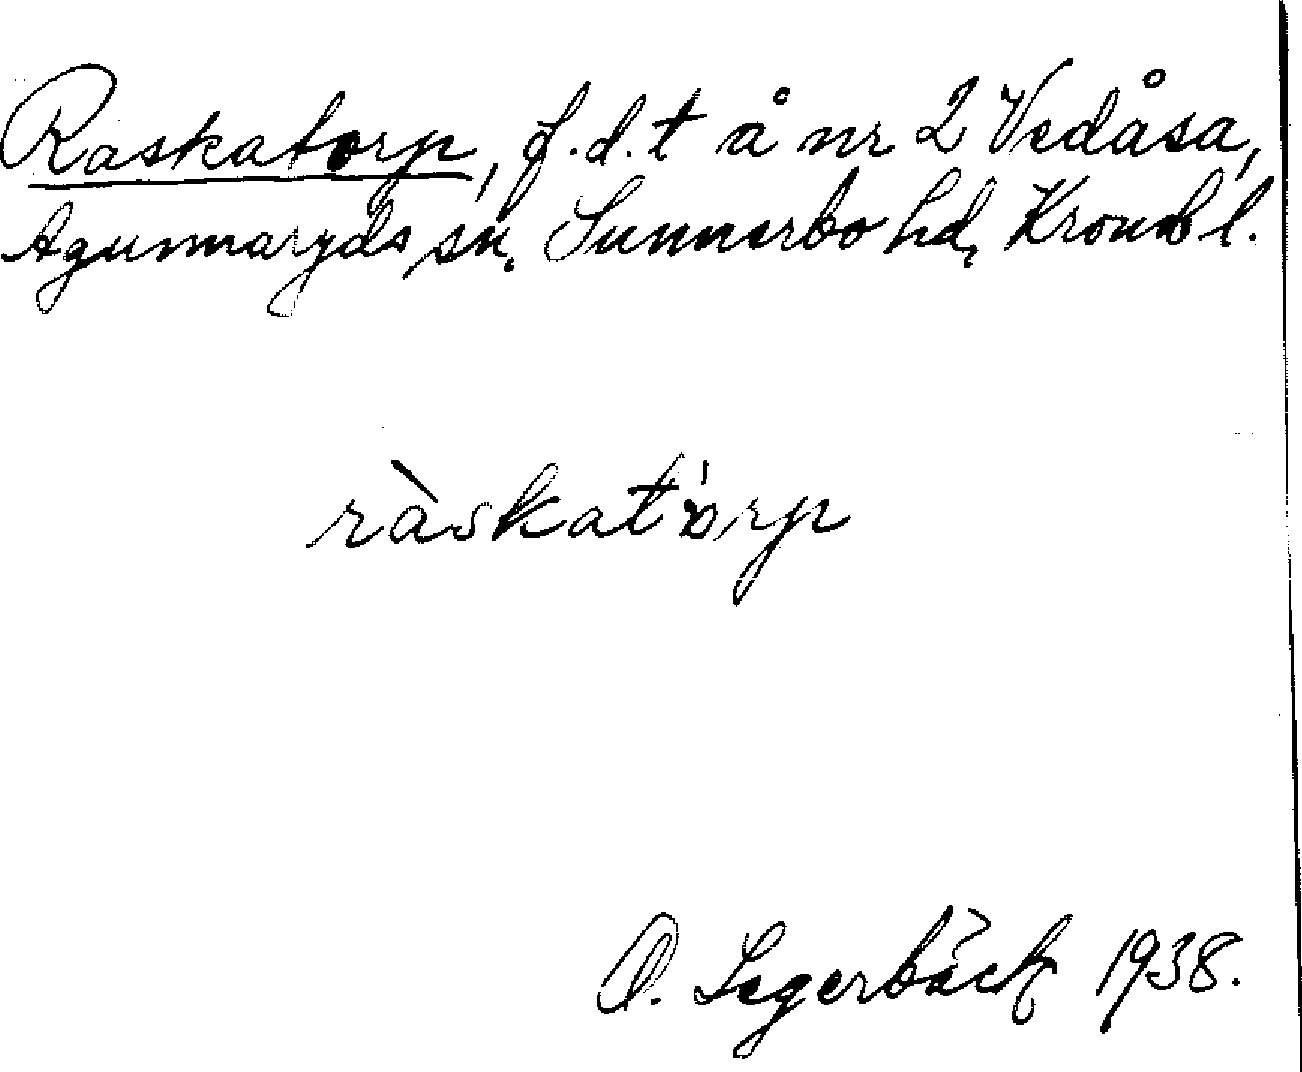 Raskatorp, f.d. t å nr 2 Vedåsa,
Agunnaryds sn. Sunnerbo hd, Kronob l.
ràskatórp
O. Segerbäck 1938.